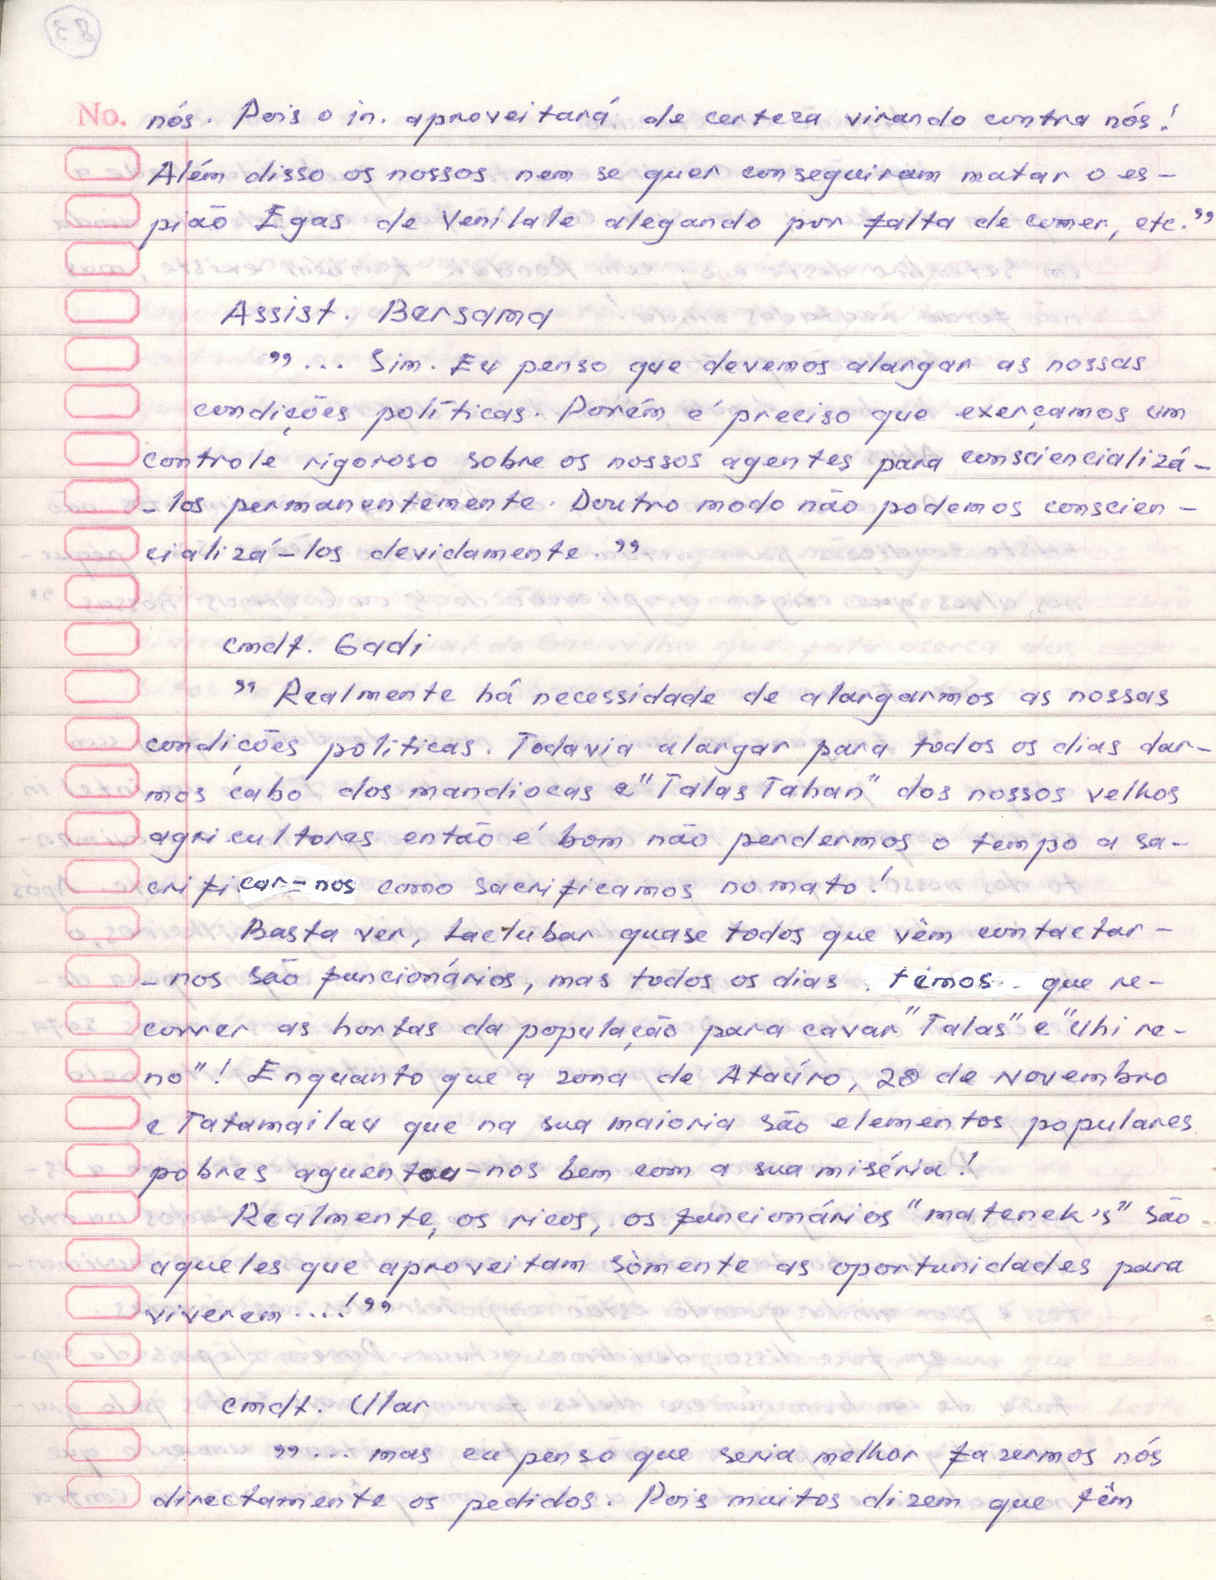 83
No. nós. Pois o in. aproveitará de certeza virando contra nós!
Além disso os nossos nem se quer conseguiram matar o es-
pião Egas de Venilale alegando por falta de comer, etc."
Assist. Bersama
"... Sim. Eu penso que devemos alargar as nossas
condições políticas. Porém é preciso que exerçamos um
controle rigoroso sobre os nossos agentes para consciencializá-
-los permanentemente. Doutro modo não podemos conscien-
cializá-los devidamente."
Cmdt. Gadi
"Realmente há necessidade de alargarmos as nossas
condições políticas. Todavia alargar para todos os dias dar-
mos cabo dos mandiocas e "Talas Tahan" dos nossos velhos
agricultores então é bom não perdermos o tempo a sa-
crificar-nos como sacrificamos no mato!
Basta ver, Lactubar quase todos que vêm contactar-
-nos são funcionários, mas todos os dias temos que re-
correr as hortas da população para cavar "Talas" e "Uhi re-
no"! Enquanto que a zona de Ataúro, 28 de Novembro
e Tatamailau que na sua maioria são elementos populares
pobres aguentou-nos bem com a sua miséria!
Realmente, os ricos, os funcionários "matenek's" são
aqueles que aproveitam sòmente as oportunidades para
viverem....!"
Cmdt. Ular
"... mas eu penso que seria melhor fazermos nós
directamente os pedidos. Pois muitos dizem que têm